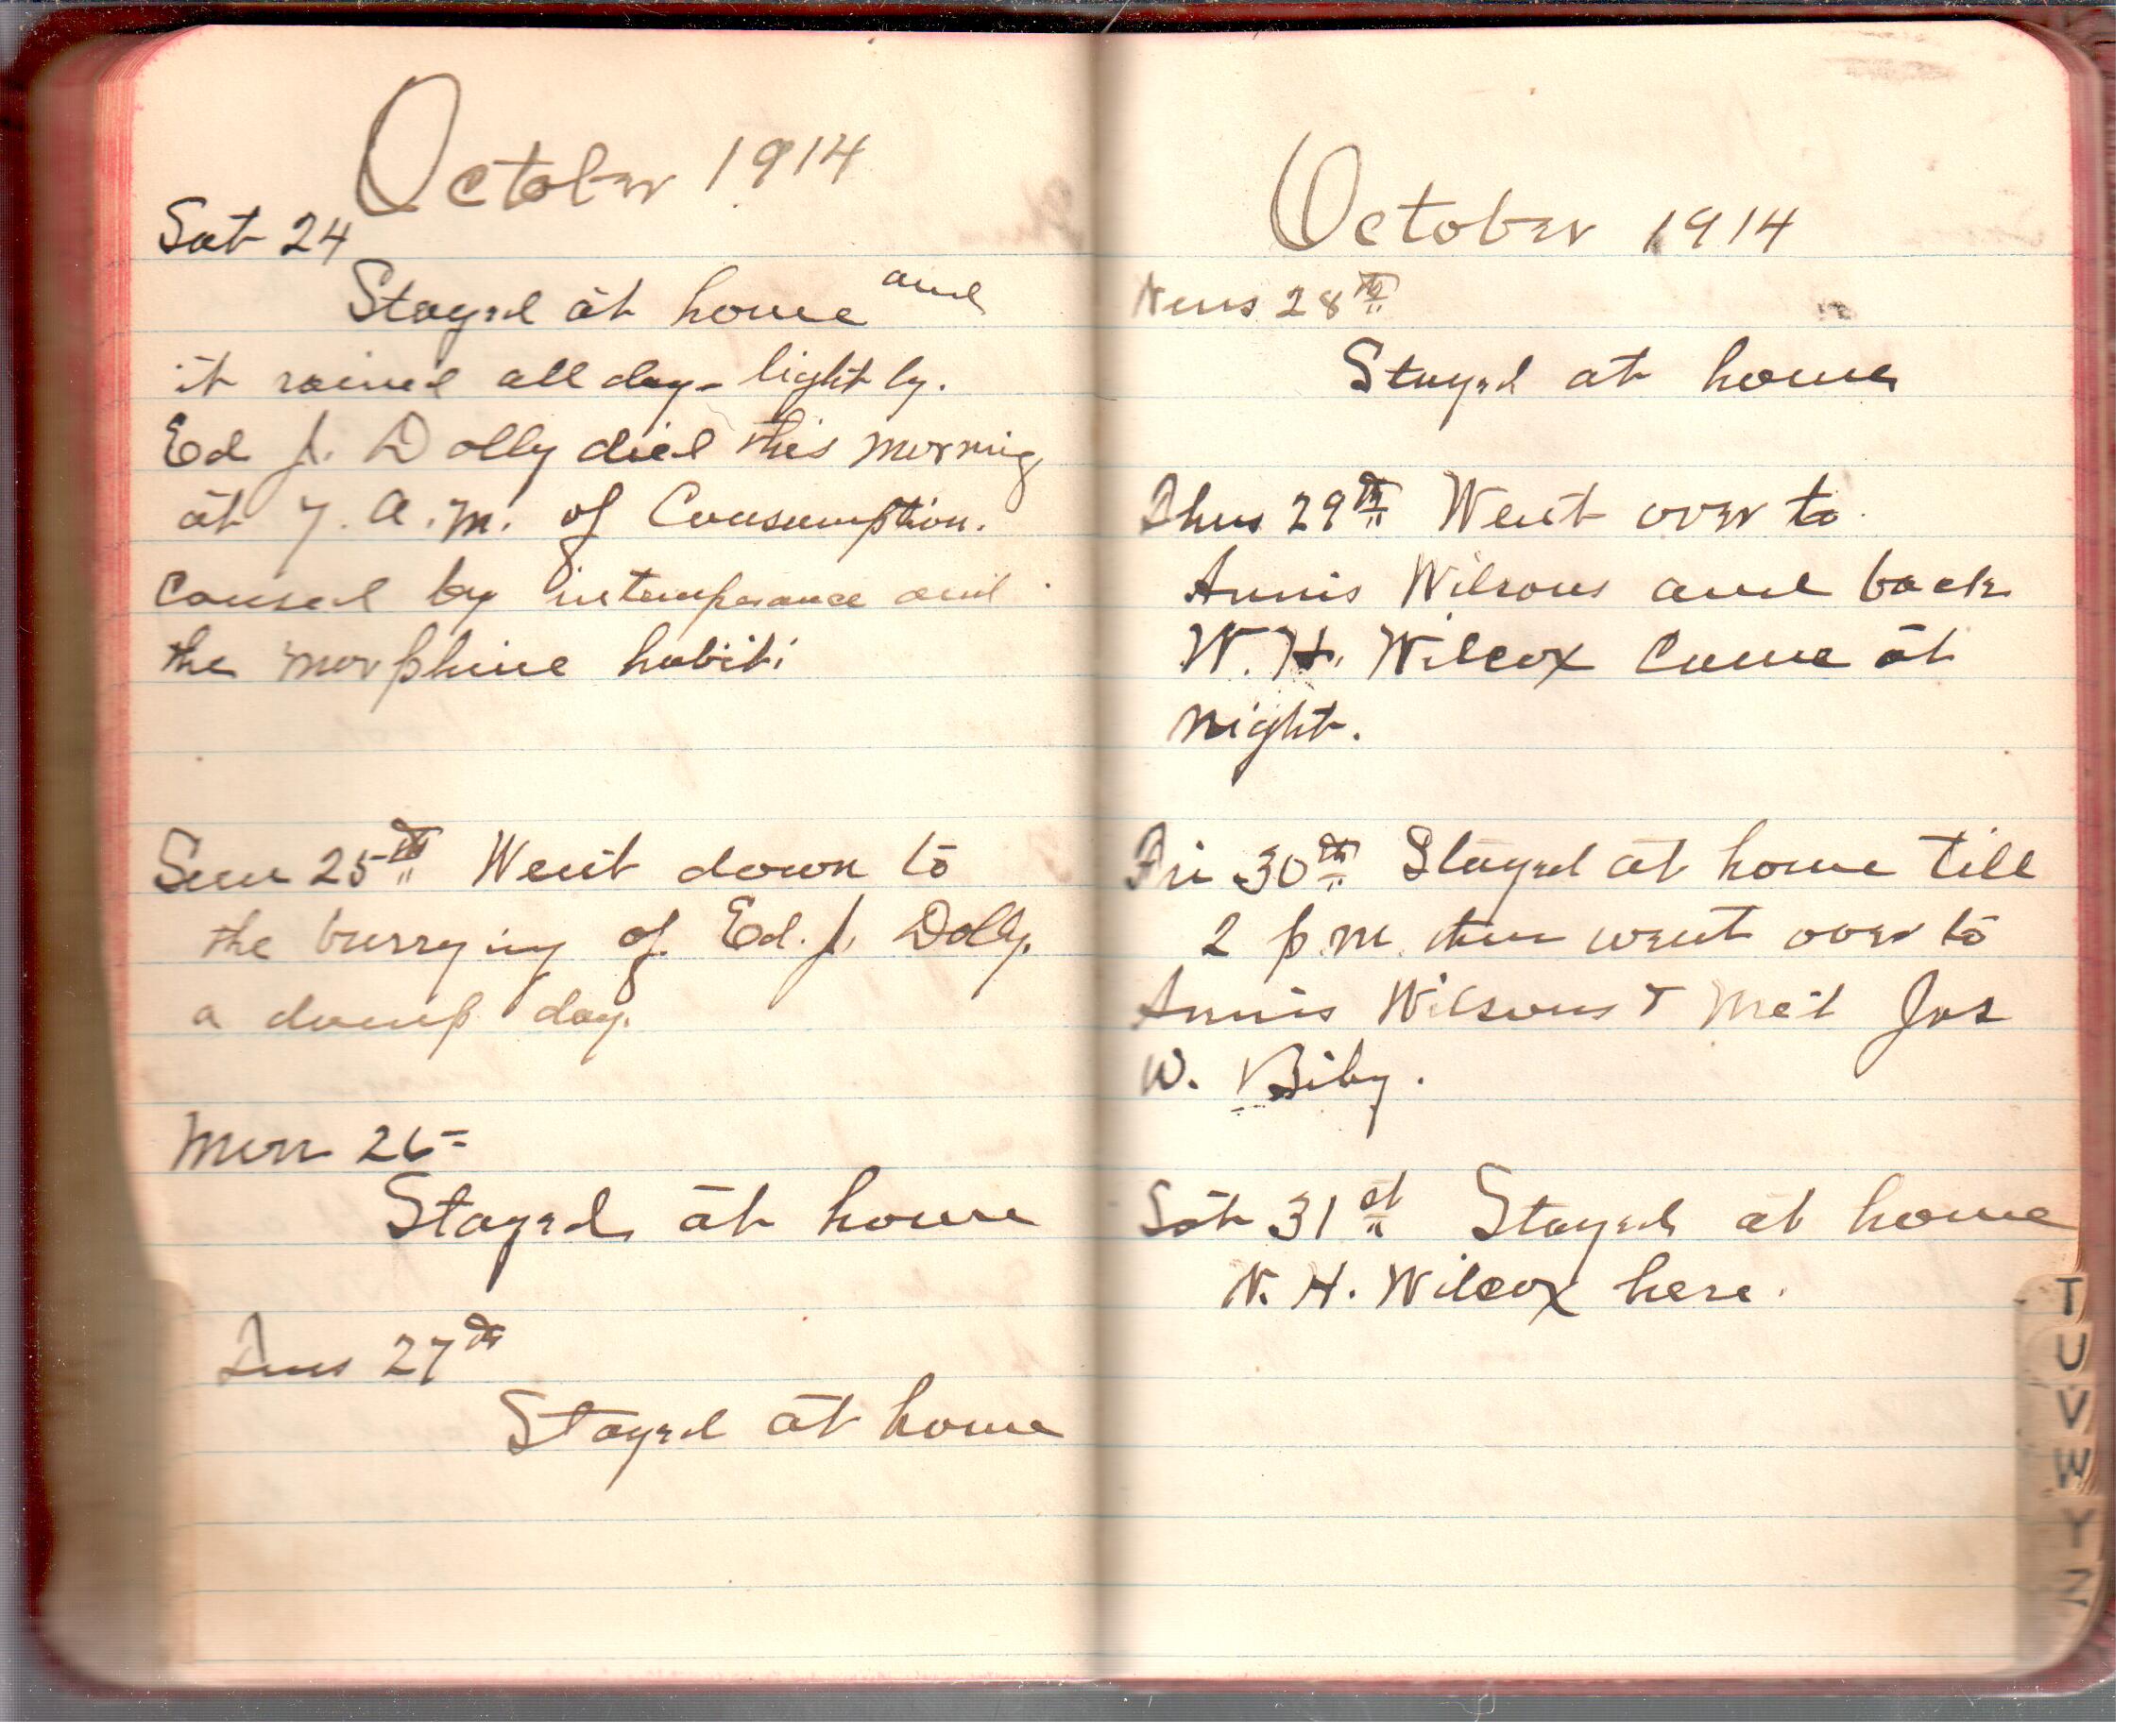 October 1914
Sat 24
Stayed at home and
it rained all day - lightly.
Ed J. Dolly died this morning
at 7. a.m. of Consumption.
Caused by intemperance and
the morphine habit.
Sun 25th Went down to
the burrying of Ed. J. Dolly.
a damp day.
Mon 26=
Stayed at home
Tues 27th
Stayed at home
October 1914
Wens 28th
Stayed at home
Thus 29th Went over to
Annis Wilsons and back
W. H. Wilcox Came at
night.
Fri 30th Stayed at home till
2 p.m. then went over to
Annis Wilsons & Met Jas
W. Biby.
Sat 31st Stayed at home
W. H. Wilcox here.
T
U
V
W
Y
Z